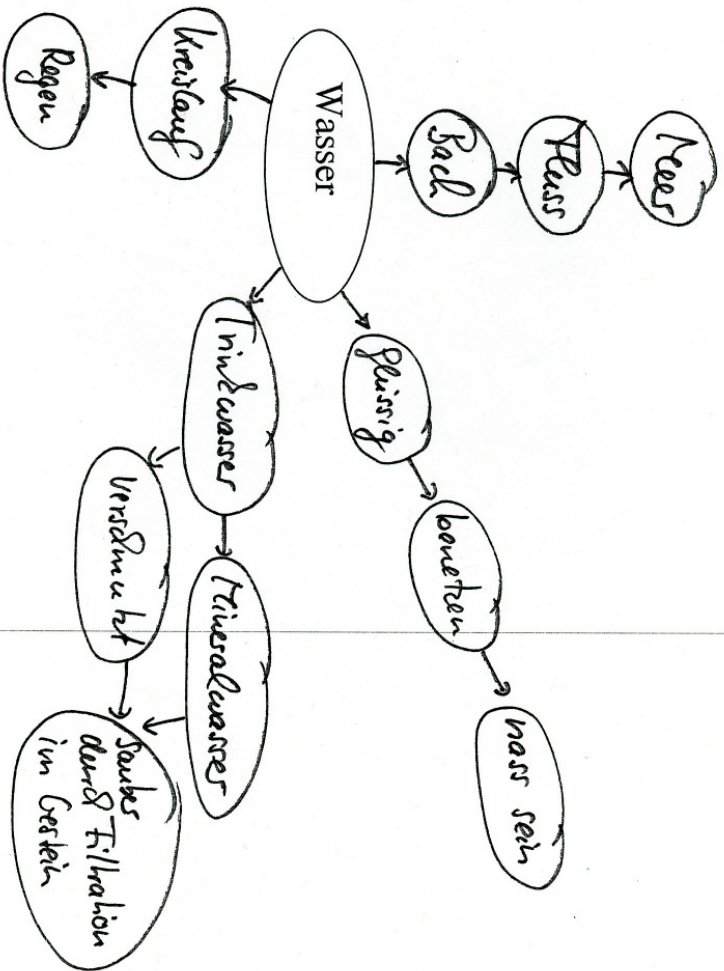 Meer
Fluss
Bach
Wasser
Kreislauf
Regen
flüssig
benetzen
nass sein
Trinkwasser
Mineralwasser
verschmutzt
sauber
durch Filtration
im Gestein